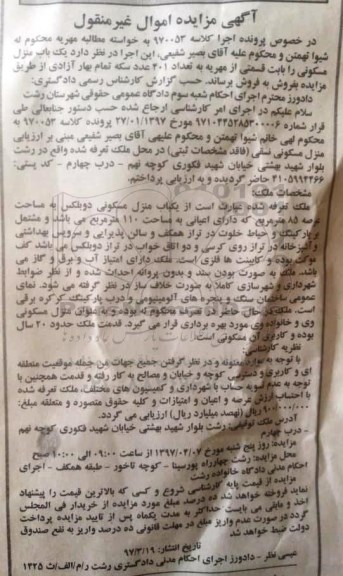 آگهی مزایده اموال غیرمنقول
در خصوص پرونده اجرا کلاسه ۹۷۰۰۵۳ به خواسته مطالبه مهریه محکوم له
شیوا تهمتن و محکوم علیه آقای بصیر شفیعی، این اجرا در نظر دارد یک باب منزل
مسکونی را بابت قسمتی از مهریه به تعداد ۴۰۱ عدد سکه تمام بهار آزادی از طریق
مزایده بفروش به فروش برساند. حسب گزارش کارشناس رسمی دادگستری:
دادورز محترم اجرای احکام شعبه سوم دادگاه عمومی حقوقی شهرستان رشت
سلام علیکم در اجرای امر کارشناسی ارجاع شده حسب دستور جنابعالی طی
قرار شماره مورخ ۲۷/۰۱/۱۳۹۷ پرونده کلاسه ۹۷۰۰۵۳ به
محکوم لهی خانم شیوا تهمتن و محکوم علیهی آقای بصیر شفیعی مبنی بر ارزیابی
منزل مسکونی نسقی (فاقد مشخصات ثبتی) در محل ملک تعرفه شده واقع در رشت
بلوار شهید بهشتی خیابان شهید فکوری کوچه نهم - درب چهارم - کد پستی:
۴۱۰۵۹۹۴۴۶۶ حاضر گردیده و به ارزیابی پرداختم.
مشخصات ملک:
ملک تعرفه شده عبارت است از یکباب منزل مسکونی دوبلکس به مساحت
عرصه ۸۵ مترمربع که دارای اعیانی به مساحت ۱۱۰ مترمربع می باشد و مشتمل
بر پارکینگ و حیاط خلوت در تراز همکف و سالن پذیرایی و سرویس بهداشتی
و آشپزخانه در تراز روی کرسی و دو اتاق خواب در تراز دوبلکس می باشد کف
موکت بوده و کابینت ها فلزی است. ملک دارای امتیاز آب و برق و گاز می
باشد. ملک به صورت بدون سند و بدون پروانه احداث شده و از نظر ضوابط
شهرداری و شهرسازی کاملا به صورت خلاف ساز در نظر گرفته می شود. نمای
عمومی ساختمان سنگ و پنجره های آلومینیومی و درب پارکینگ کرکره برقی
است. ملک در حال حاضر در تصرف محکوم له بوده و به عنوان منزل مسکونی
وی و خانواده وی مورد بهره برداری قرار می گیرد. قدمت ملک حدود ۲۰ سال
بوده و کاربری آن مسکونی است.
نظریه کارشناسی:
با توجه به موارد معنونه و در نظر گرفتن جمیع جهات من جمله موقعیت منطقه
ای و کاربری و دسترسی کوچه و خیابان و مصالح به کار رفته و قدمت همچنین با
توجه به عدم تسویه حساب با شهرداری و کمیسیون های مختلف، ملک تعرفه شده
با احتساب ارزش عرصه و اعیان و امتیازات و کلیه حقوق متصوره و متعلقه مبلغ:
ریال (نهصد میلیارد ریال) ارزیابی می گردد.
آدرس ملک توقیفی: رشت بلوار شهید بهشتی خیابان شهید فکوری کوچه نهم
- درب چهارم
مزایده: روز پنج شنبه مورخ ۱۳۹۷/۰۴/۰۷ از ساعت ۰۹:۰۰ الی ۱۰:۰۰ صبح
محل مزایده: رشت چهارراه پورسینا - کوچه تاخور - طبقه همکف - اجرای
احکام مدنی دادگاه خانواده رشت
مزایده از قیمت پایه کارشناسی شروع و کسی که بالاترین قیمت را پیشنهاد
نماید فروخته خواهد شد ده درصد مبلغ مورد مزایده از خریدار فی المجلس
اخذ و مابقی می بایست حداکثر به مدت یکماه پس از تایید مزایده پرداخت
گردد در صورت عدم واریز مبلغ در مهلت قانونی ده درصد واریز به نفع صندوق
دولت ضبط خواهد شد
تاریخ انتشار: ۹۷/۳/۱۹
عیسی نظر - دادورز اجرای احکام مدنی دادگستری رشت ر/م/الف/ث ۱۳۲۵